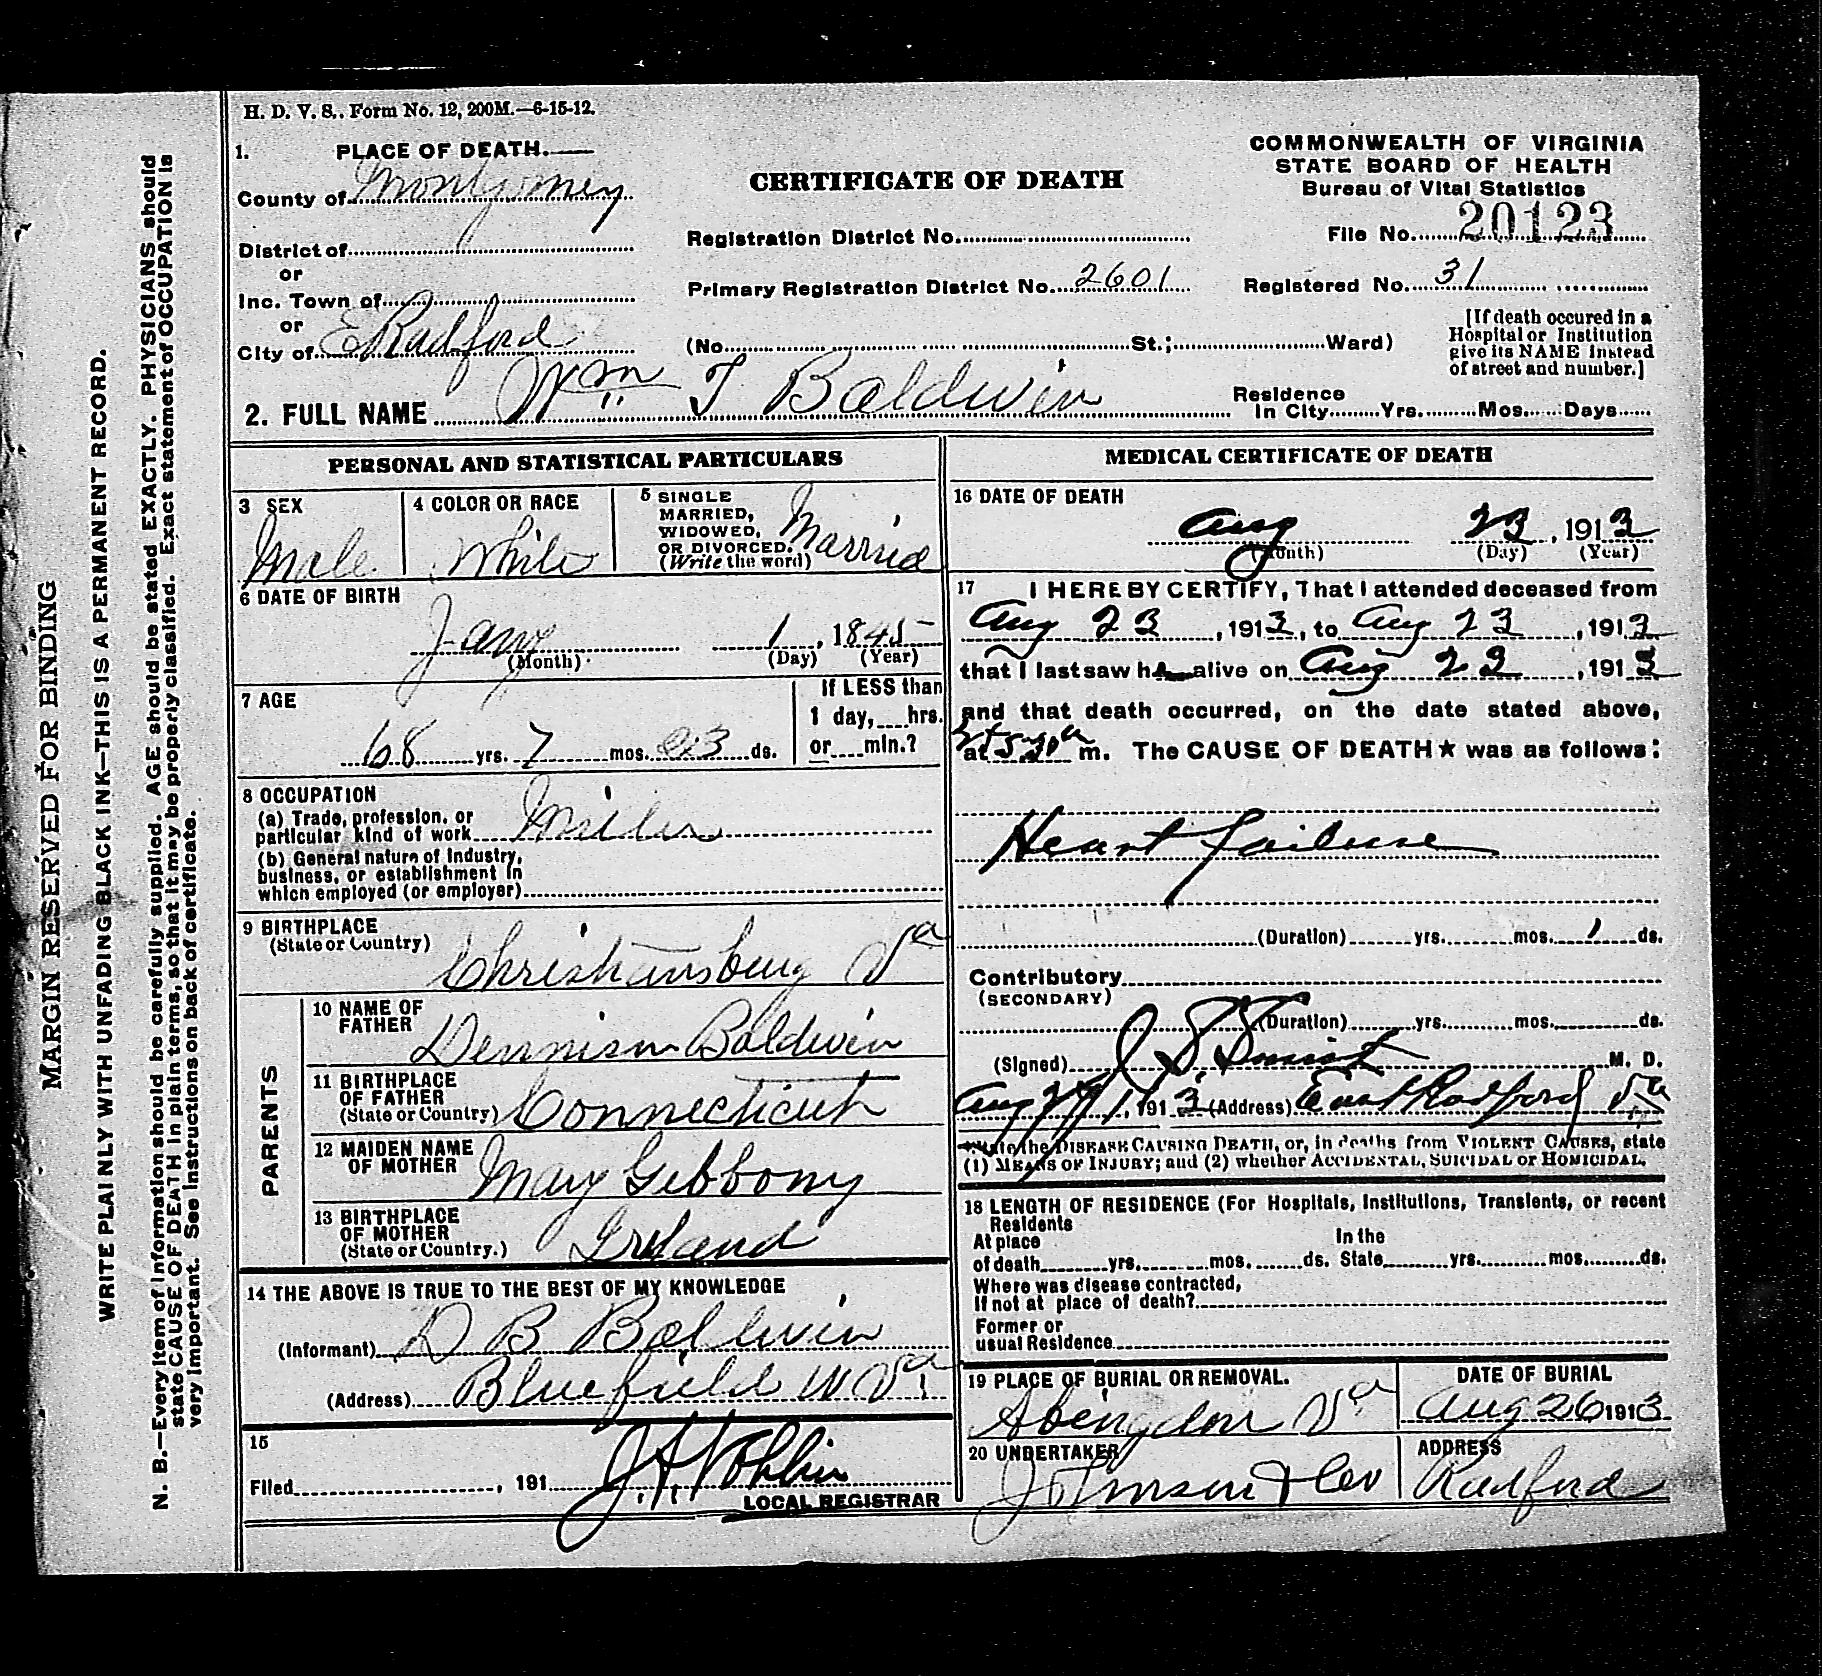 H. D. V. S., Form No. 12, 200M.—6-15-12.
1. PLACE OF DEATH.
County of Montgomery
District of
or
Inc. Town of
or
City of E Radford
CERTIFICATE OF DEATH
Registration District No.
Primary Registration District No. 2601
(No. St.; Ward)
COMMONWEALTH OF VIRGINIA
STATE BOARD OF HEALTH
Bureau of Vital Statistics
File No. 20123
Registered No. 31
[If death occured in a
Hospital or Institution
give its NAME instead
of street and number.]
2. FULL NAME Wm T Baldwin
Residence
In City Yrs. Mos. Days
PERSONAL AND STATISTICAL PARTICULARS
3 SEX
Male
4 COLOR OR RACE
White
5 SINGLE
MARRIED,
WIDOWED,
OR DIVORCED.
(Write the word)
Married
6 DATE OF BIRTH
Jany 1, 1845
(Month) (Day) (Year)
7 AGE
68 yrs. 7 mos. 23 ds.
If LESS than
1 day, hrs.
or min.?
8 OCCUPATION
(a) Trade, profession, or
particular kind of work Miller
(b) General nature of Industry,
business, or establishment in
which employed (or employer)
9 BIRTHPLACE
(State or Country)
Christiansburg Va
PARENTS
10 NAME OF
FATHER
Dennison Baldwin
11 BIRTHPLACE
OF FATHER
(State or Country) Connecticut
12 MAIDEN NAME
OF MOTHER
Mary Gibbony
13 BIRTHPLACE
OF MOTHER
(State or Country.) Ireland
14 THE ABOVE IS TRUE TO THE BEST OF MY KNOWLEDGE
(Informant) D B Baldwin
(Address) Bluefield W Va
15
Filed , 191
LOCAL REGISTRAR
MEDICAL CERTIFICATE OF DEATH
16 DATE OF DEATH
Aug 23, 1913
(Month) (Day) (Year)
17 I HEREBY CERTIFY, That I attended deceased from
Aug 23, 1913, to Aug 23, 1913
that I last saw h alive on Aug 23, 1913
and that death occurred, on the date stated above,
at 5 30 a m. The CAUSE OF DEATH★ was as follows:
Heart Failure
(Duration) yrs. mos. 1 ds.
Contributory
(SECONDARY)
(Duration) yrs. mos. ds.
(Signed) M. D.
Aug , 1913 (Address) East Radford Va
the DISEASE CAUSING DEATH, or, in deaths from VIOLENT CAUSES, state
(1) MEANS OF INJURY; and (2) whether ACCIDENTAL, SUICIDAL or HOMICIDAL.
18 LENGTH OF RESIDENCE (For Hospitals, Institutions, Transients, or recent
Residents
At place In the
of death yrs. mos. ds. State yrs. mos. ds.
Where was disease contracted,
If not at place of death?
Former or
usual Residence
19 PLACE OF BURIAL OR REMOVAL.
Abingdon Va
DATE OF BURIAL
Aug 26 1913
20 UNDERTAKER
Johnson & Co
ADDRESS
Radford
MARGIN RESERVED FOR BINDING
WRITE PLAINLY WITH UNFADING BLACK INK—THIS IS A PERMANENT RECORD.
N. B.—Every item of information should be carefully supplied. AGE should be stated EXACTLY. PHYSICIANS should
state CAUSE OF DEATH in plain terms, so that it may be properly classified. Exact statement of OCCUPATION is
very important. See instructions on back of certificate.